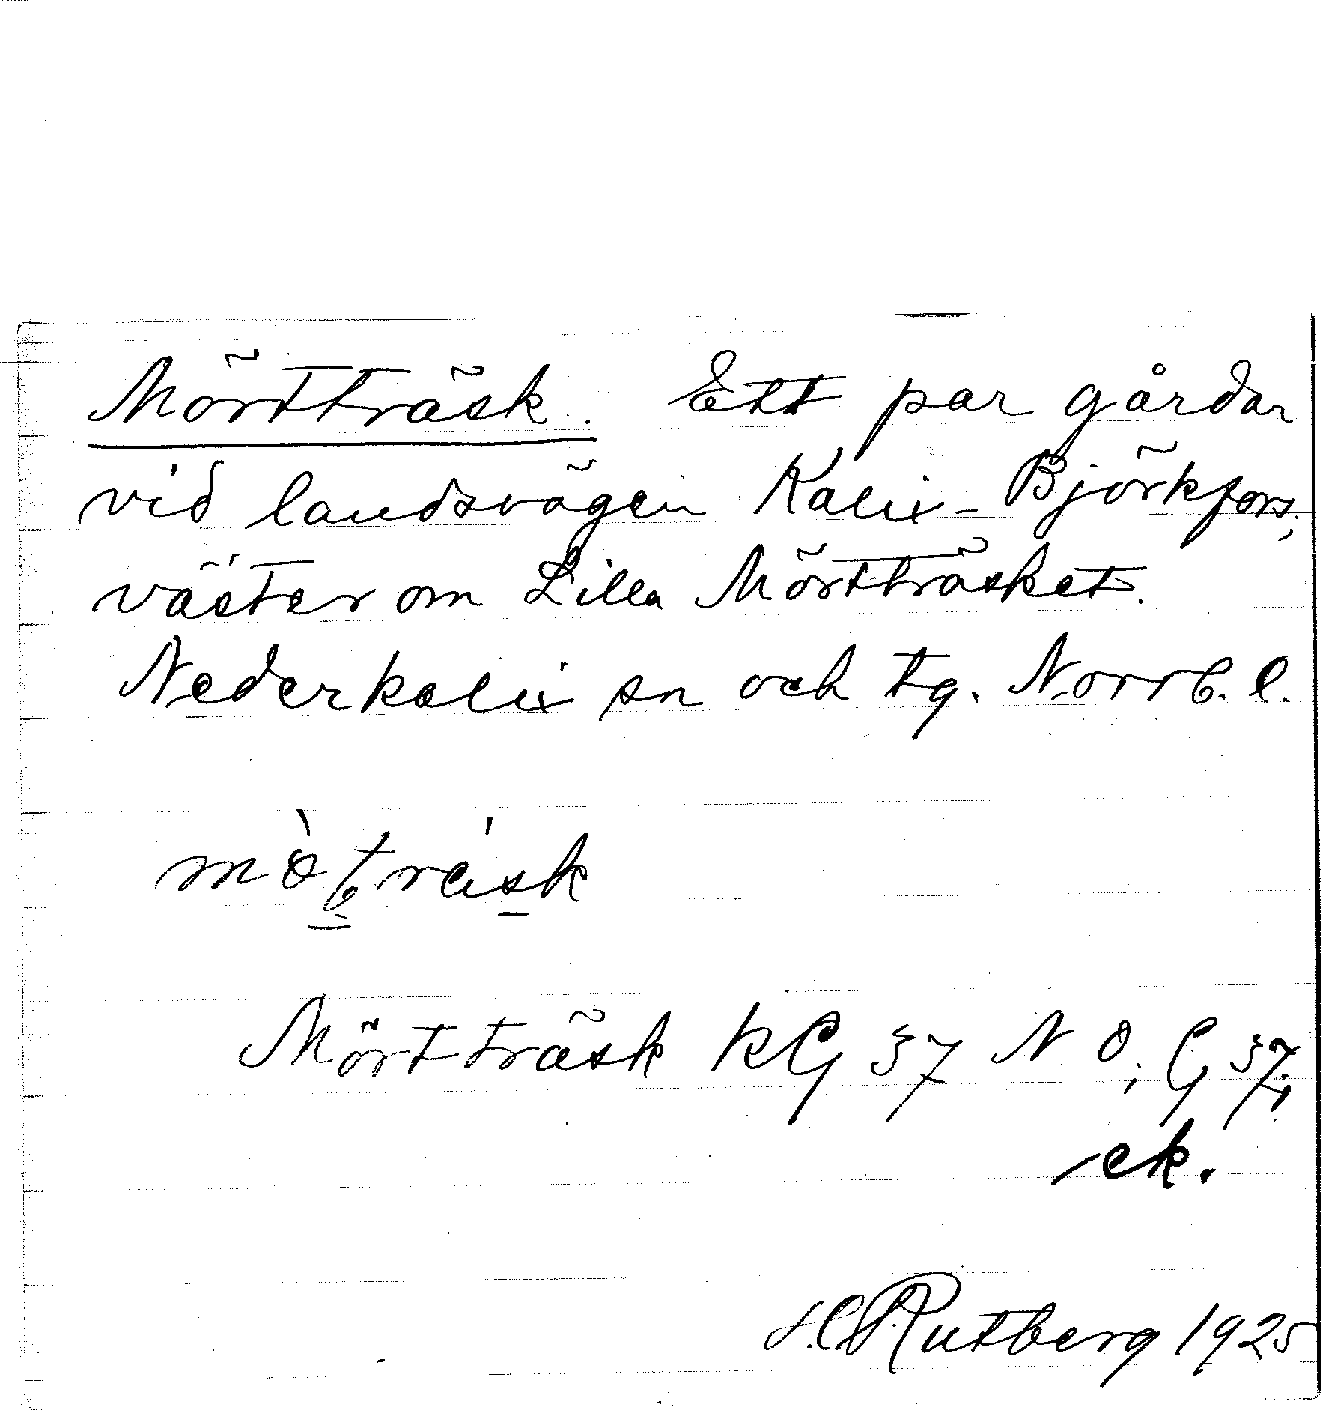 Mörtträsk. Ett par gårdar
vid landsvägen Kalix-Björkfors,
väster om Lilla Mörtträsket.
Nederkalix sn och tg. Norrb. l.
Mörtträsk kG 37 N O; G 37;
ek.
H. Rutberg 1925